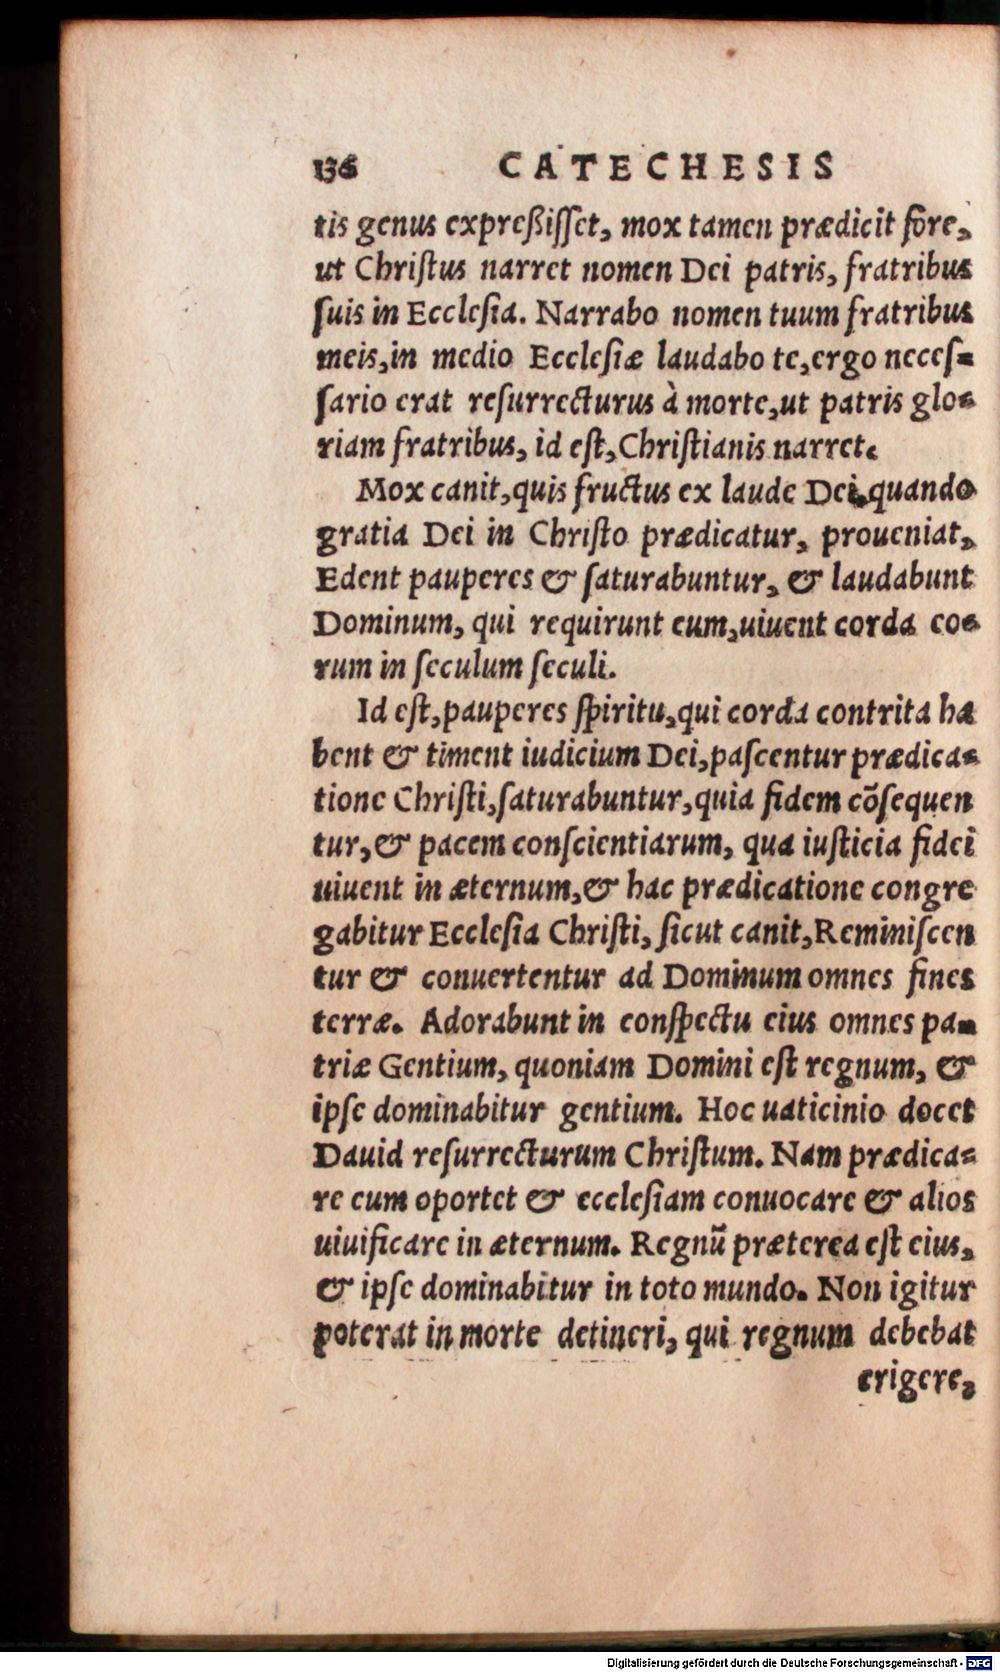 136 CATECHESIS
tis genus expreßiſſet, mox tamen prædicit fore,
ut Chriſtus narret nomen Dei patris, fratribus
ſuis in Eccleſia. Narrabo nomen tuum fratribus
meis, in medio Eccleſiæ laudabo te, ergo neceſ=
ſario erat reſurrecturus à morte, ut patris glo=
riam fratribus, id eſt, Chriſtianis narret.
Mox canit, quis fructus ex laude Dei, quando
gratia Dei in Chriſto prædicatur, proueniat,
Edent pauperes & ſaturabuntur, & laudabunt
Dominum, qui requirunt eum, uiuent corda eo=
rum in ſeculum ſeculi.
Id eſt, pauperes ſpiritu, qui corda contrita ha
bent & timent iudicium Dei, paſcentur prædica=
tione Chriſti, ſaturabuntur, quia fidem cõſequen
tur, & pacem conſcientiarum, qua iuſticia fidei
uiuent in æternum, & hac prædicatione congre
gabitur Eccleſia Chriſti, ſicut canit, Reminiſcen
tur & conuertentur ad Dominum omnes fines
terræ. Adorabunt in conſpectu eius omnes pa=
triæ Gentium, quoniam Domini eſt regnum, &
ipſe dominabitur gentium. Hoc uaticinio docet
Dauid reſurrecturum Chriſtum. Nam prædica=
re eum oportet & eccleſiam conuocare & alios
uiuificare in æternum. Regnũ præterea eſt eius,
& ipſe dominabitur in toto mundo. Non igitur
poterat in morte detineri, qui regnum debebat
erigere,
Digitalisierung gefördert durch die Deutsche Forschungsgemeinschaft - DFG